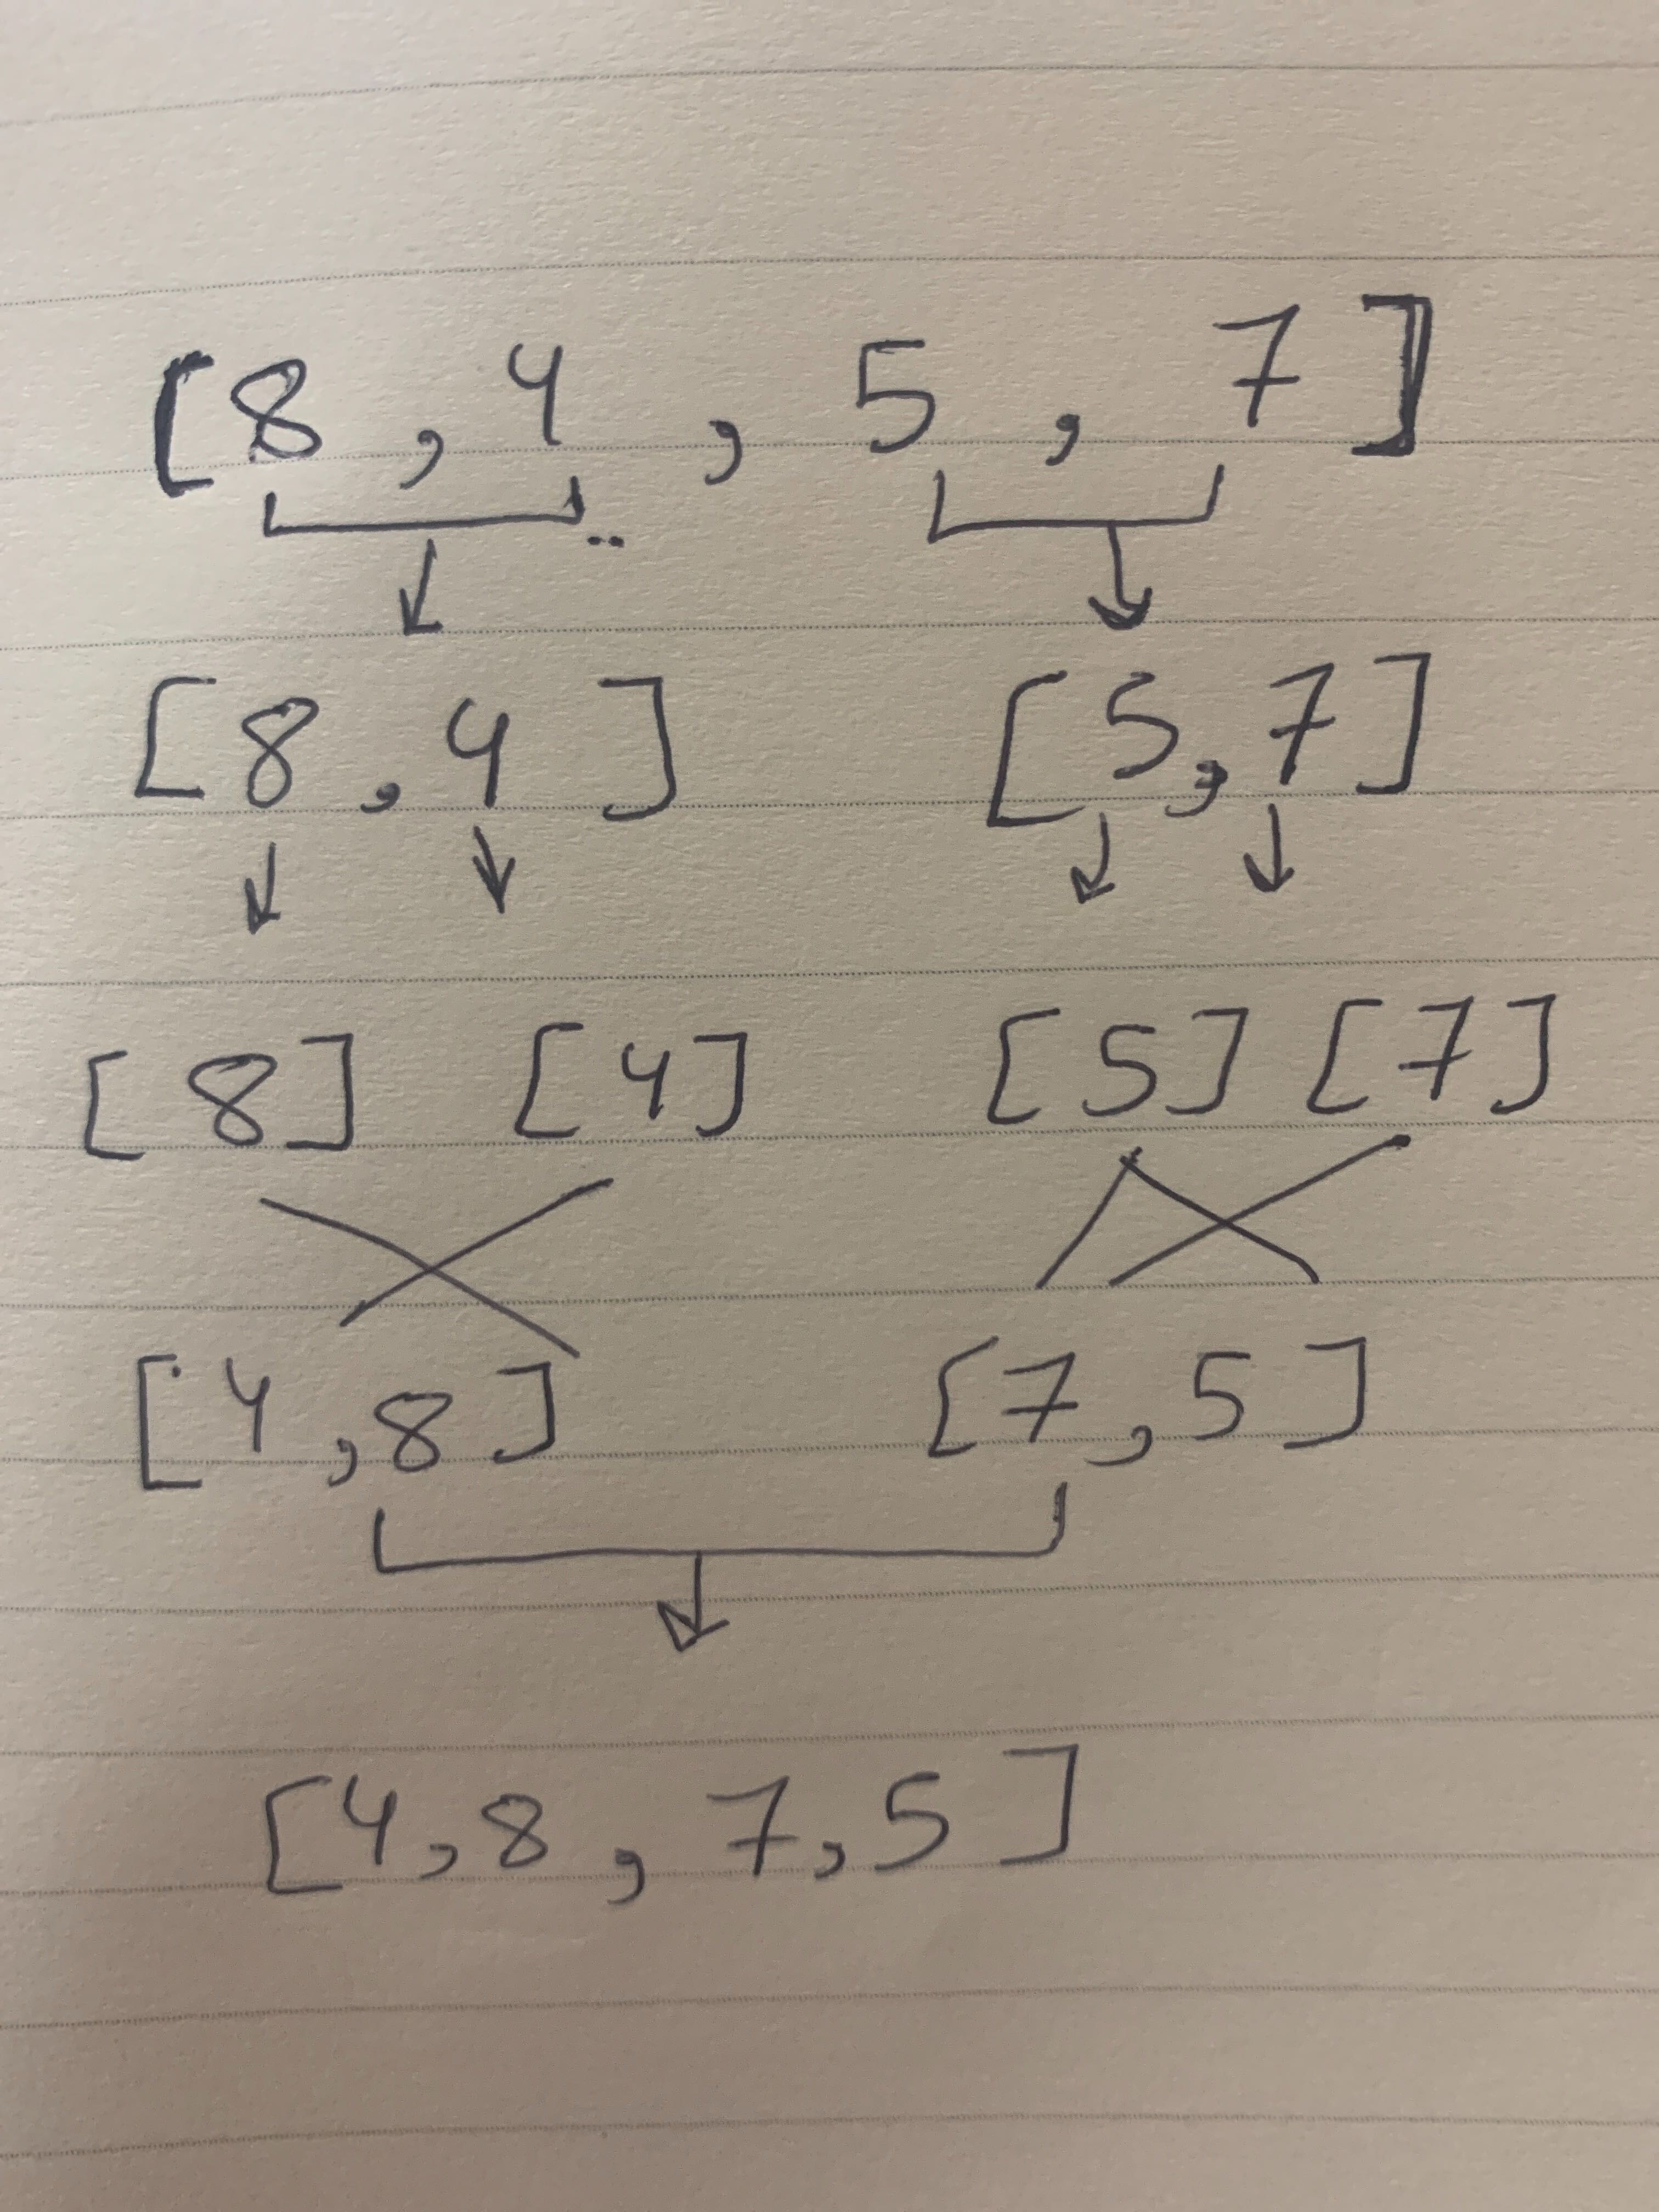 [8, 4, 5, 7]
[8, 4] [5, 7]
[8] [4] [5] [7]
[4, 8] [7, 5]
[4, 8, 7, 5]